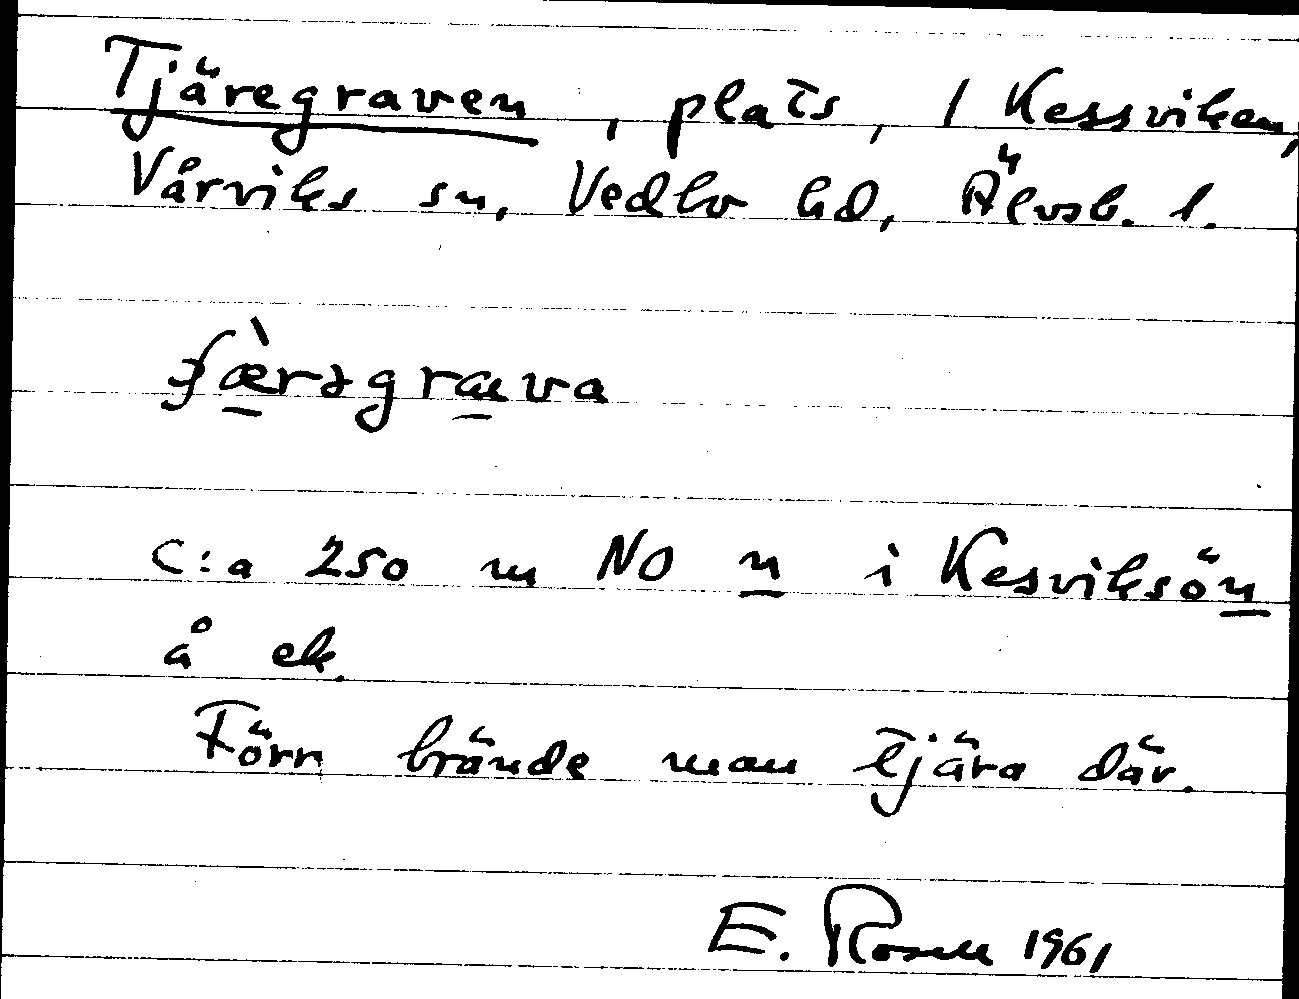 Tjäregraven, plats, 1 Kessviken,
Vårviks sn, Vedbo hd, Älvsb. l.
C:a 250 m NO n i Kesviksön
å ek.
Förr brände man tjära där.
E. Rosell 1961